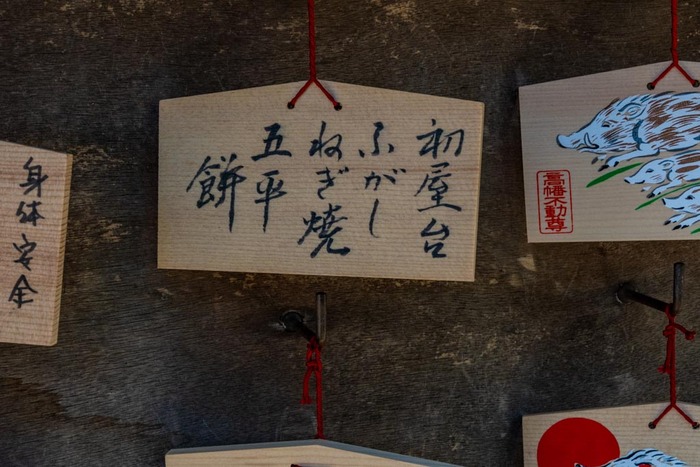 初屋台
ふがし
ねぎ焼
五平
餅
身体安全
高幡不動尊